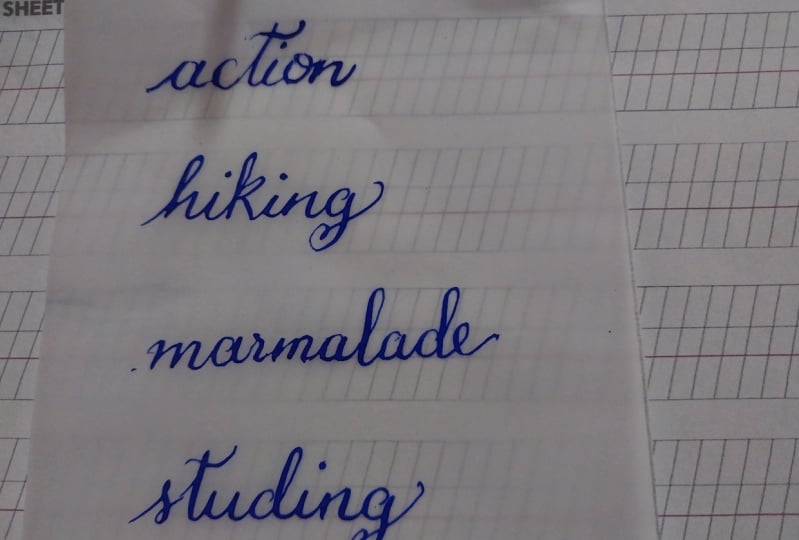 SHEET
action
hiking
marmalade
studing